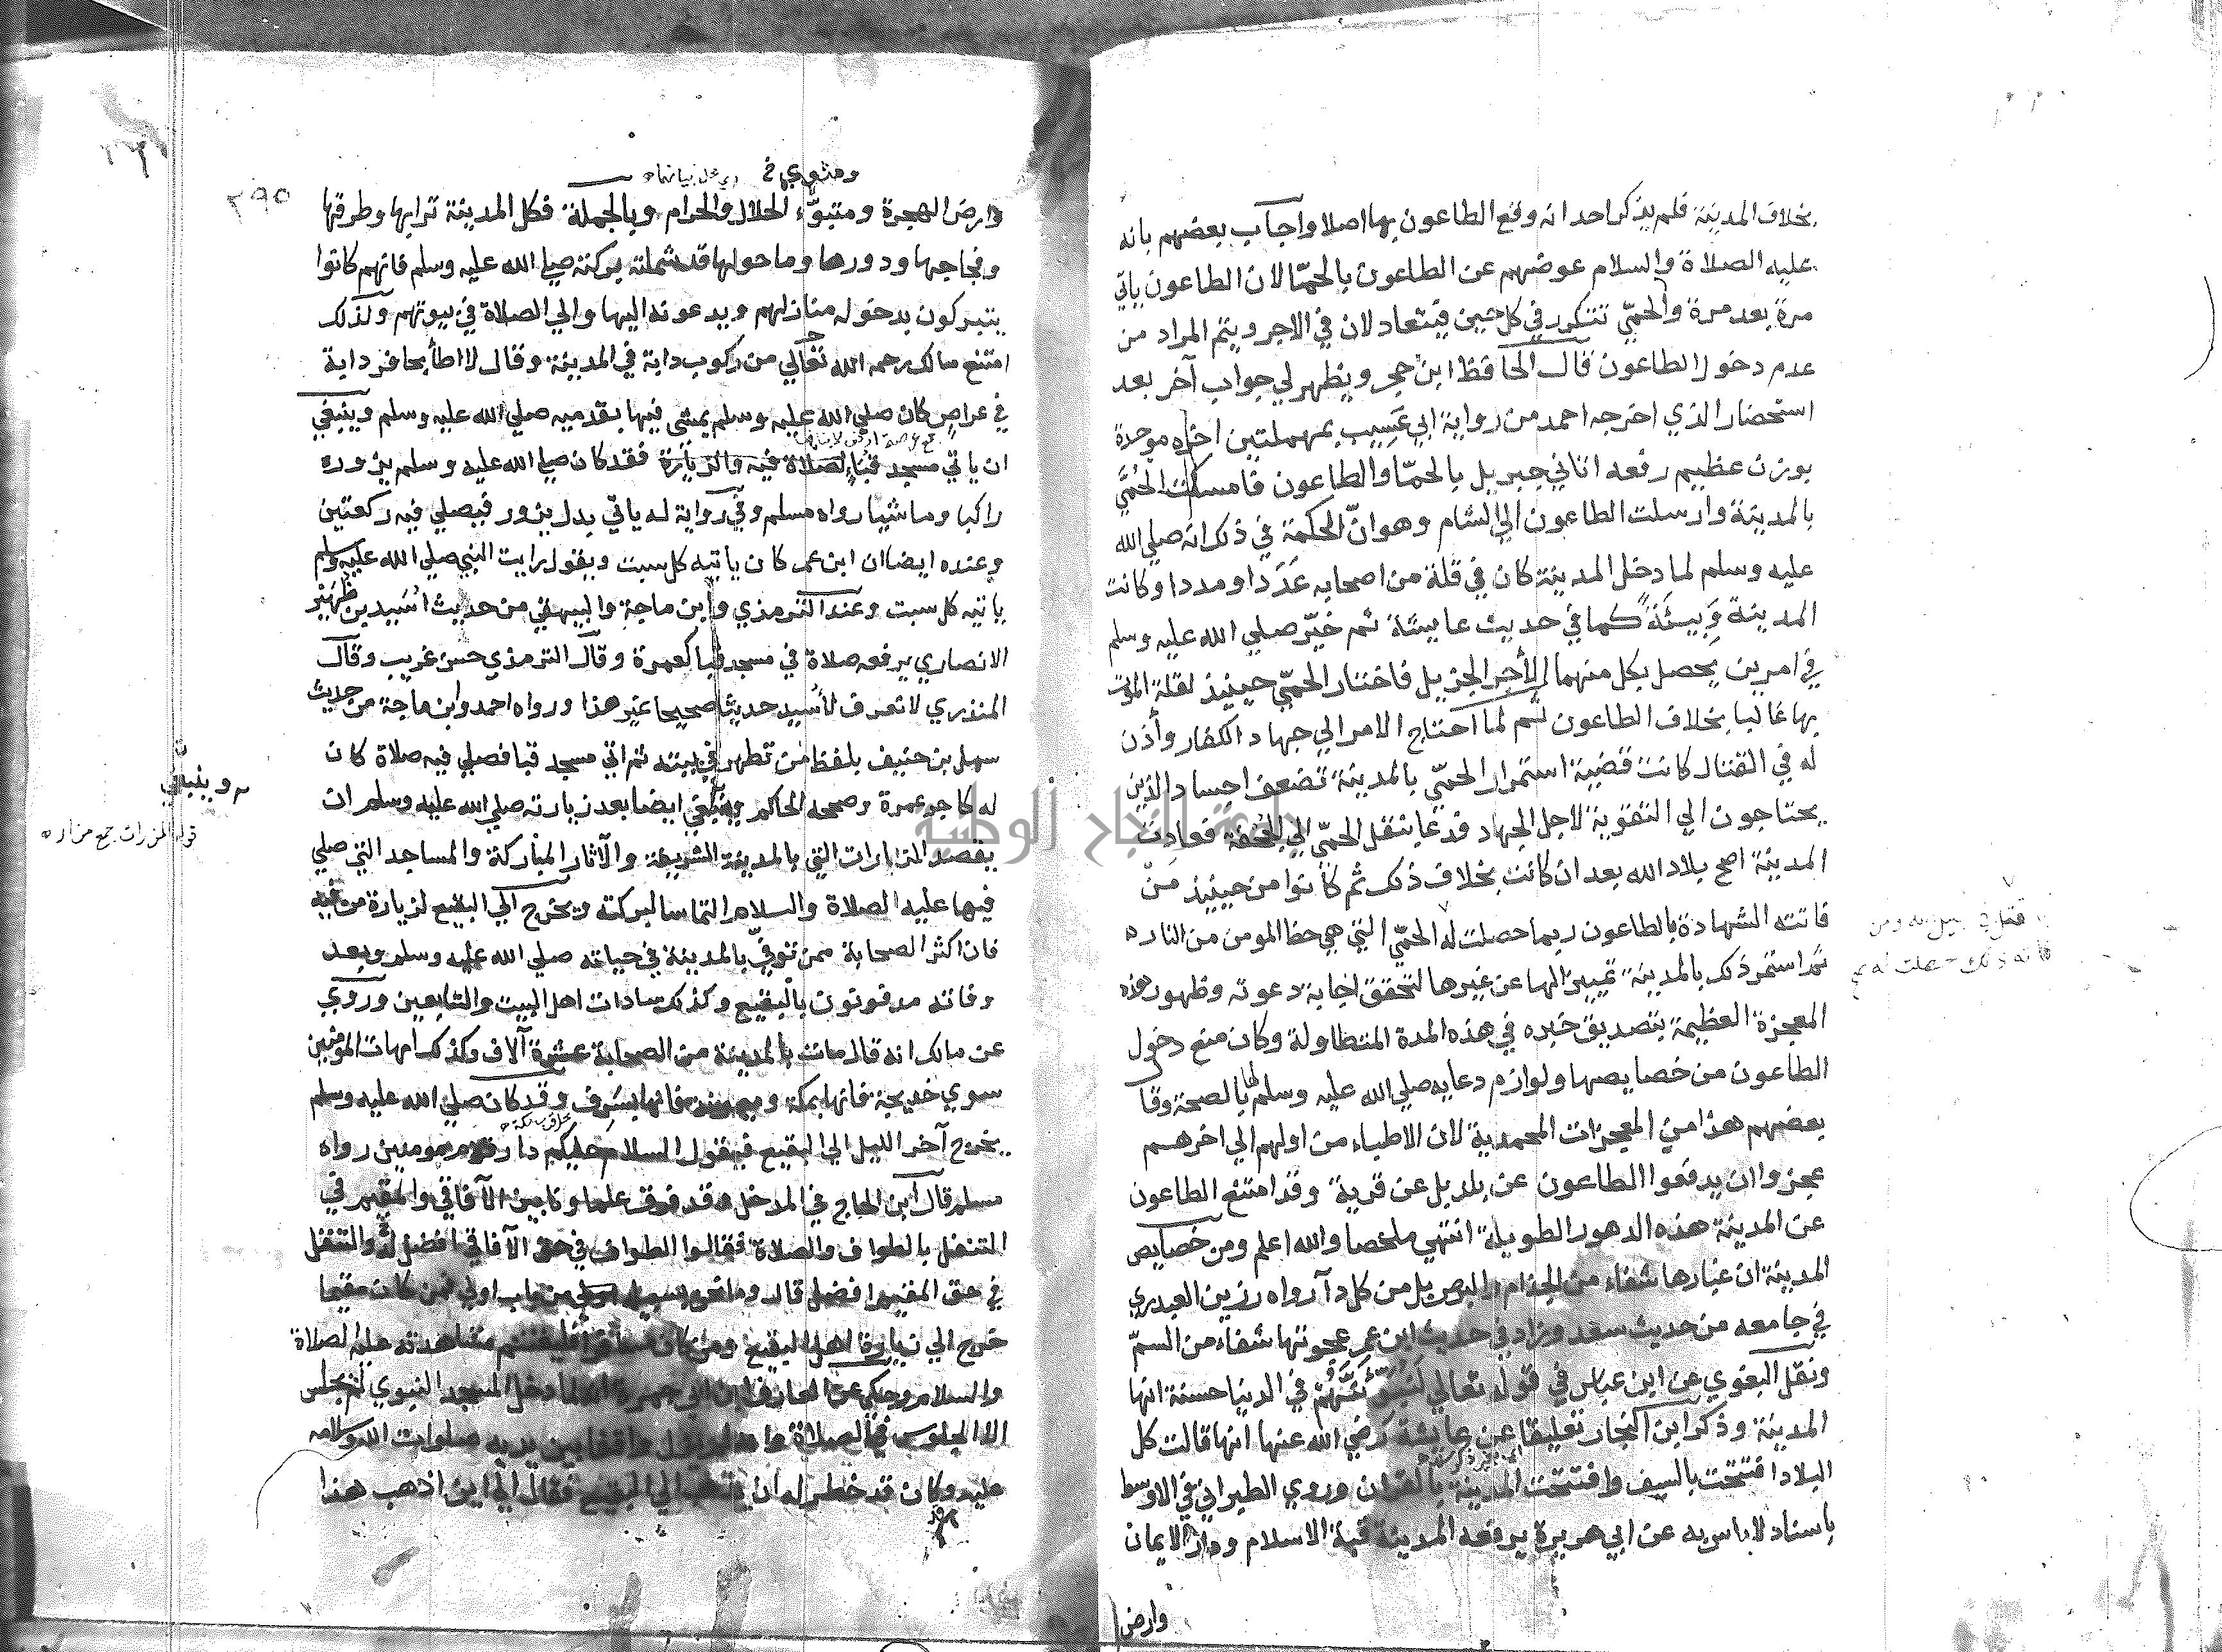 بخلاف المدينة فلم يذكر احد انه وقع الطاعون بها اصلا واجاب بعضهم بانه
عليه الصلاة والسلام عوضهم عن الطاعون بالحمّا لان الطاعون ياتي
مرة بعد مرة والحمّي تتكرر في كل حين فيتعادلان في الاجر ويتم المراد من
عدم دخول الطاعون قال الحافظ ابن حجر ويظهر لي جواب آخر بعد
استحضار الذي اخرجه احمد من رواية ابي عَسِيب بمهملتين اخره موحدة
بوزن عظيم رفعه اتاني جبريل بالحمّا والطاعون فامسكت الحُمَّي
بالمدينة وارسلت الطاعون الي الشام وهو انّ الحكمة في ذلك انه صلي الله
عليه وسلم لما دخل المدينة كان في قلة من اصحابه عَدَدا ومددا وكانت
المدينة وَبِيئَة كما في حديث عايشة ثم خيّر صلي الله عليه وسلم
في امرين يحصل بكل منهما الأجر الجزيل فاختار الحمّي حينيذ لقلة الموت
بها غالبا بخلاف الطاعون ثم لما احتاج الامر الي جهاد الكفار وأذن
له في القتال كانت قضية استمرار الحمّي بالمدينة تضعف اجساد الذين
يحتاجون الي التقوية لاجل الجهاد فدعا بنقل الحمّي الي الجحفة فعادت
المدينة اصح بلاد الله بعد ان كانت بخلاف ذلك ثم كانوا من حينيذ مَنْ
فاتته الشهادة بالطاعون ربما حصلت له الحمّي التي هي حظ المومن من النار
ثم استمر ذلك بالمدينة تمييزا لها عن غيرها لتحقق اجابة دعوته وظهور هذه
المعجزة العظيمة بتصديق خبره في هذه المدة المتطاولة وكان منع دخول
الطاعون من خصايصها ولوازم دعايه صلي الله عليه وسلم لها بالصحة وقا
بعضهم هذا من المعجزات المحمدية لان الاطباء من اولهم الي اخرهم
عجزوا ان يدفعوا الطاعون عن بلد بل عن قرية وقد امتنع الطاعون
عن المدينة هذه الدهور الطويلة انتهي ملخصا والله اعلم ومن خصايص
المدينة ان غبارها شفاء من الجذام والبرص بل من كل دآ رواه رزين العبدري
في جامعه من حديث سعد وزاد في حديث ابن عمر عجوتها شفاء من السمّ
ونقل البغوي عن ابن عباس في قوله تعالي لَنُبَوِّئَنَّهُمْ في الدنيا حسنة انها
المدينة وذكر ابن النجار تعليقا عن عايشة رضي الله عنها انها قالت كل
البلاد افتتحت بالسيف وافتتحت المدينة بالقران وروي الطبراني في الاوسط
باسناد لا باس به عن ابي هريرة يرفعه المدينة قبة الاسلام ودار الايمان
وارض
فقتل في سبيل الله ومن
فاته ذلك حصلت له
٣٩٥
ومثوي
وارض الهجرة ومتبوّء الحلال والحرام وبالجملة فكل المدينة ترابها وطرقها
وفجاجها ودورها وما حولها قد شملته بركته صلي الله عليه وسلم فانهم كانوا
يتبركون بدخوله منازلهم ويدعونه اليها والي الصلاة في بيوتهم ولذلك
امتنع مالك رحمه الله تعالي من ركوب دابة في المدينة وقال لا اطأ بحافر دابة
في عراص كان صلي الله عليه وسلم يمشي فيها بقدميه صلي الله عليه وسلم وينبغي
ان ياتي مسجد قباء للصلاة فيه والزيارة فقد كان صلي الله عليه وسلم يزوره
راكبا وماشيا رواه مسلم وفي رواية له ياتي بدل يزور فيصلي فيه ركعتين
وعنده ايضا ان ابن عمر كان ياتيه كل سبت ويقول رايت النبي صلي الله عليه وسلم
ياتيه كل سبت وعند الترمذي وابن ماجة والبيهقي من حديث اُسَيد بن ظُهَيْر
الانصاري يرفعه صلاة في مسجد قبا كعمرة وقال الترمذي حسن غريب وقال
المنذري لا نعرف لأسيد حديثا صحيحا غير هذا ورواه احمد وابن ماجة من حديث
سهل بن حنيف بلفظ من تطهر في بيته ثم اتي مسجد قبا فصلي فيه صلاة كان
له كاجر عمرة وصححه الحاكم وينبغي ايضا بعد زيارته صلي الله عليه وسلم ان
يقصد المزارات التي بالمدينة الشريفة والآثار المباركة والمساجد التي صلي
فيها عليه الصلاة والسلام التماسا لبركته ويخرج الي البقيع لزيارة من فيه
فان اكثر الصحابة ممن توفّي بالمدينة في حياته صلي الله عليه وسلم وبعد
وفاته مدفونون بالبقيع وكذلك سادات اهل البيت والتابعين وروي
عن مالك انه قال مات بالمدينة من الصحابة عشرة آلاف وكذلك امهات المؤمنين
سوي خديجة فانها بمكة وميمونة فانها بسَرِف وقد كان صلي الله عليه وسلم
يخرج آخر الليل الي البقيع فيقول السلام عليكم دار قوم مومنين رواه
مسلم قال ابن الحاج في المدخل وقد فرق علماونا بين الآفاقي والمقيم في
التنفل بالطواف والصلاة فقالوا الطواف في حق الآفاقي افضل له والتنفل
في حق المقيم افضل قال وما نحن بسبيله من باب اولي فمن كان مقيما
خرج الي زيارة اهل البقيع ومن كان مسافرا فليغتنم مشاهدته عليه الصلاة
والسلام وحكي عن العارف ابن ابي جمرة انه لما دخل المسجد النبوي لم يجلس
الا الجلوس في الصلاة وانه لم يزل واقفا بين يديه صلوات الله وسلامه
عليه وكان قد خطر له ان يذهب الي البقيع فقال الي اين اذهب هذا
وينبغي
قوله المزرات جمع مزاره
جامعة النجاح الوطنية